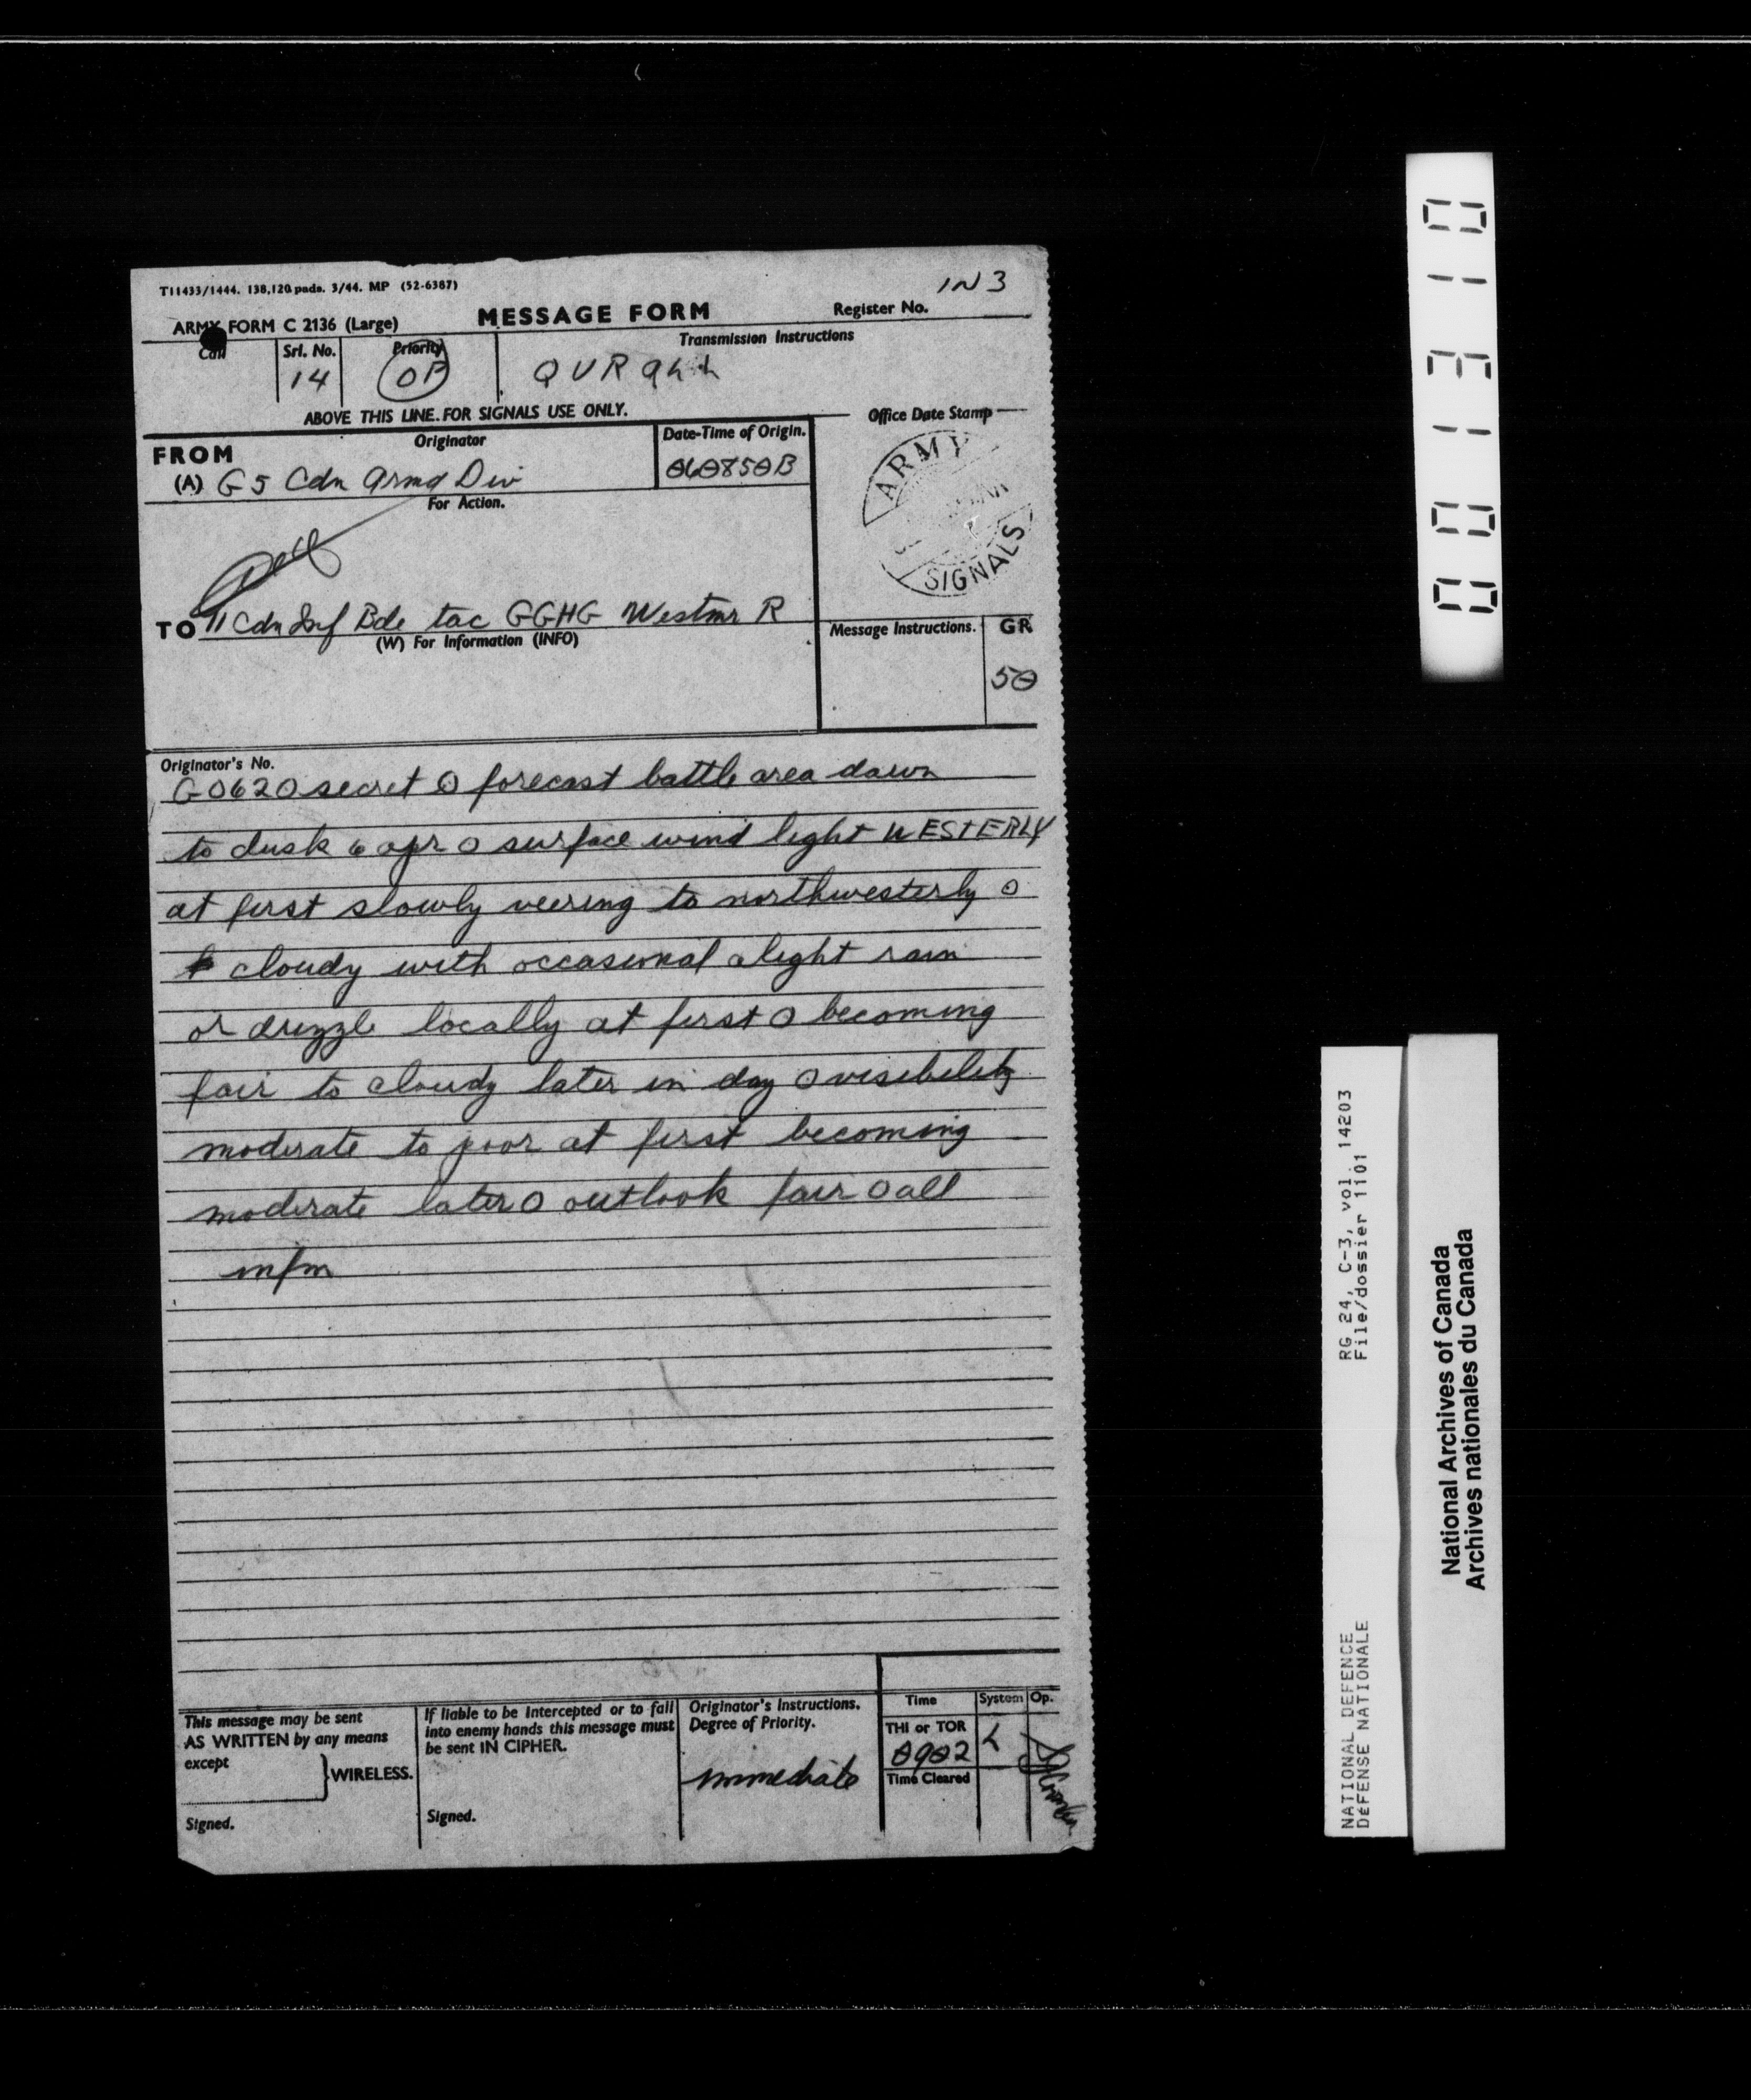 T11433/1444. 138,120 pads. 3/44. MP (52-6387)
IN 3
ARMY FORM C 2136 (Large)
MESSAGE FORM
Register No.
Call
Srl. No.
14
Priority
OP
Transmission Instructions
QVR
ABOVE THIS LINE FOR SIGNALS USE ONLY.
FROM
(A)
Originator
G 5 Cdn Armd Div
Date-Time of Origin.
060850B
Office Date Stamp
ARMY
SIGNALS
For Action.
TO 11 Cdn Inf Bde tac GGHG Westmr R
(W) For Information (INFO)
Message Instructions.
GR
50
Originator's No.
GO620 secret O forecast battle area dawn
to dusk 6 apr O surface wind light WESTERLY
at first slowly veering to northwesterly O
cloudy with occasional slight rain
or drizzle locally at first O becoming
fair to cloudy later in day O visibility
moderate to poor at first becoming
moderate later O outlook fair O all
infm
This message may be sent
AS WRITTEN by any means
except
WIRELESS.
Signed.
If liable to be intercepted or to fall
into enemy hands this message must
be sent IN CIPHER.
Signed.
Originator's Instructions.
Degree of Priority.
immediate
Time
System
Op.
THI or TOR
0902
L
Time Cleared
001310
RG 24, C-3, vol. 14203
File/dossier 1101
NATIONAL DEFENCE
DÉFENSE NATIONALE
National Archives of Canada
Archives nationales du Canada